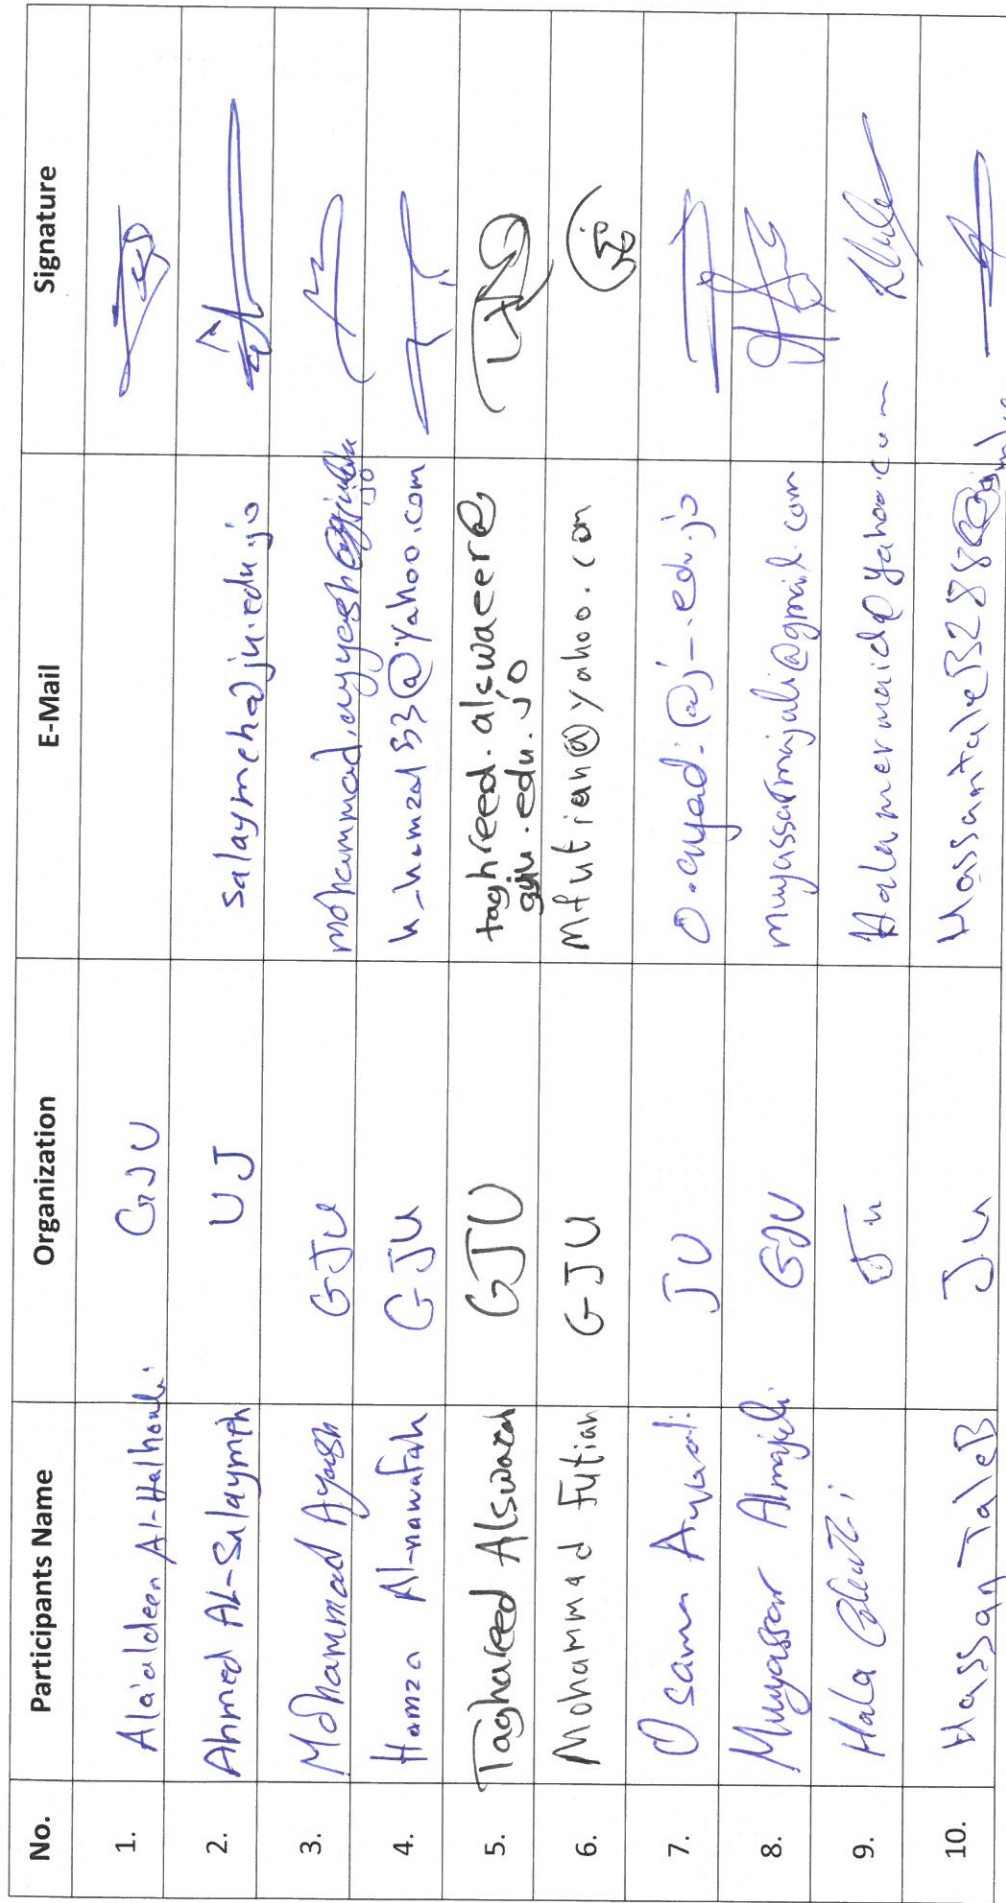 No. Participants Name Organization E-Mail Signature
1. Ala'aldeen Al-Halhouli GJU
2. Ahmed AL-Salaymeh UJ salaymeh@ju.edu.jo
3. Mohammad Ayyash GJU
4. Hamza Al-nawafah GJU
5. Taghareed Alswaeer GJU taghreed.alswaeer@
gju.edu.jo
6. Mohammad Futian GJU Mfutian@yahoo.com
7. Osama Ayadi JU
8. Muyassar Almajali GJU muyassarmajali@gmail.com
9. Hala Ju Halamermaid@yahoo.com
10. Hassan TaleB Ju